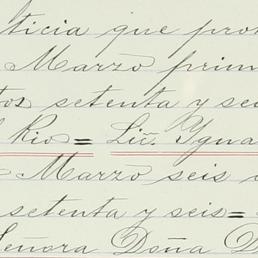 ticia que pro
Marzo prim
tos setenta y sei
Rio = Lic. Ygna
Marzo seis
setenta y seis =
Señora Doña D